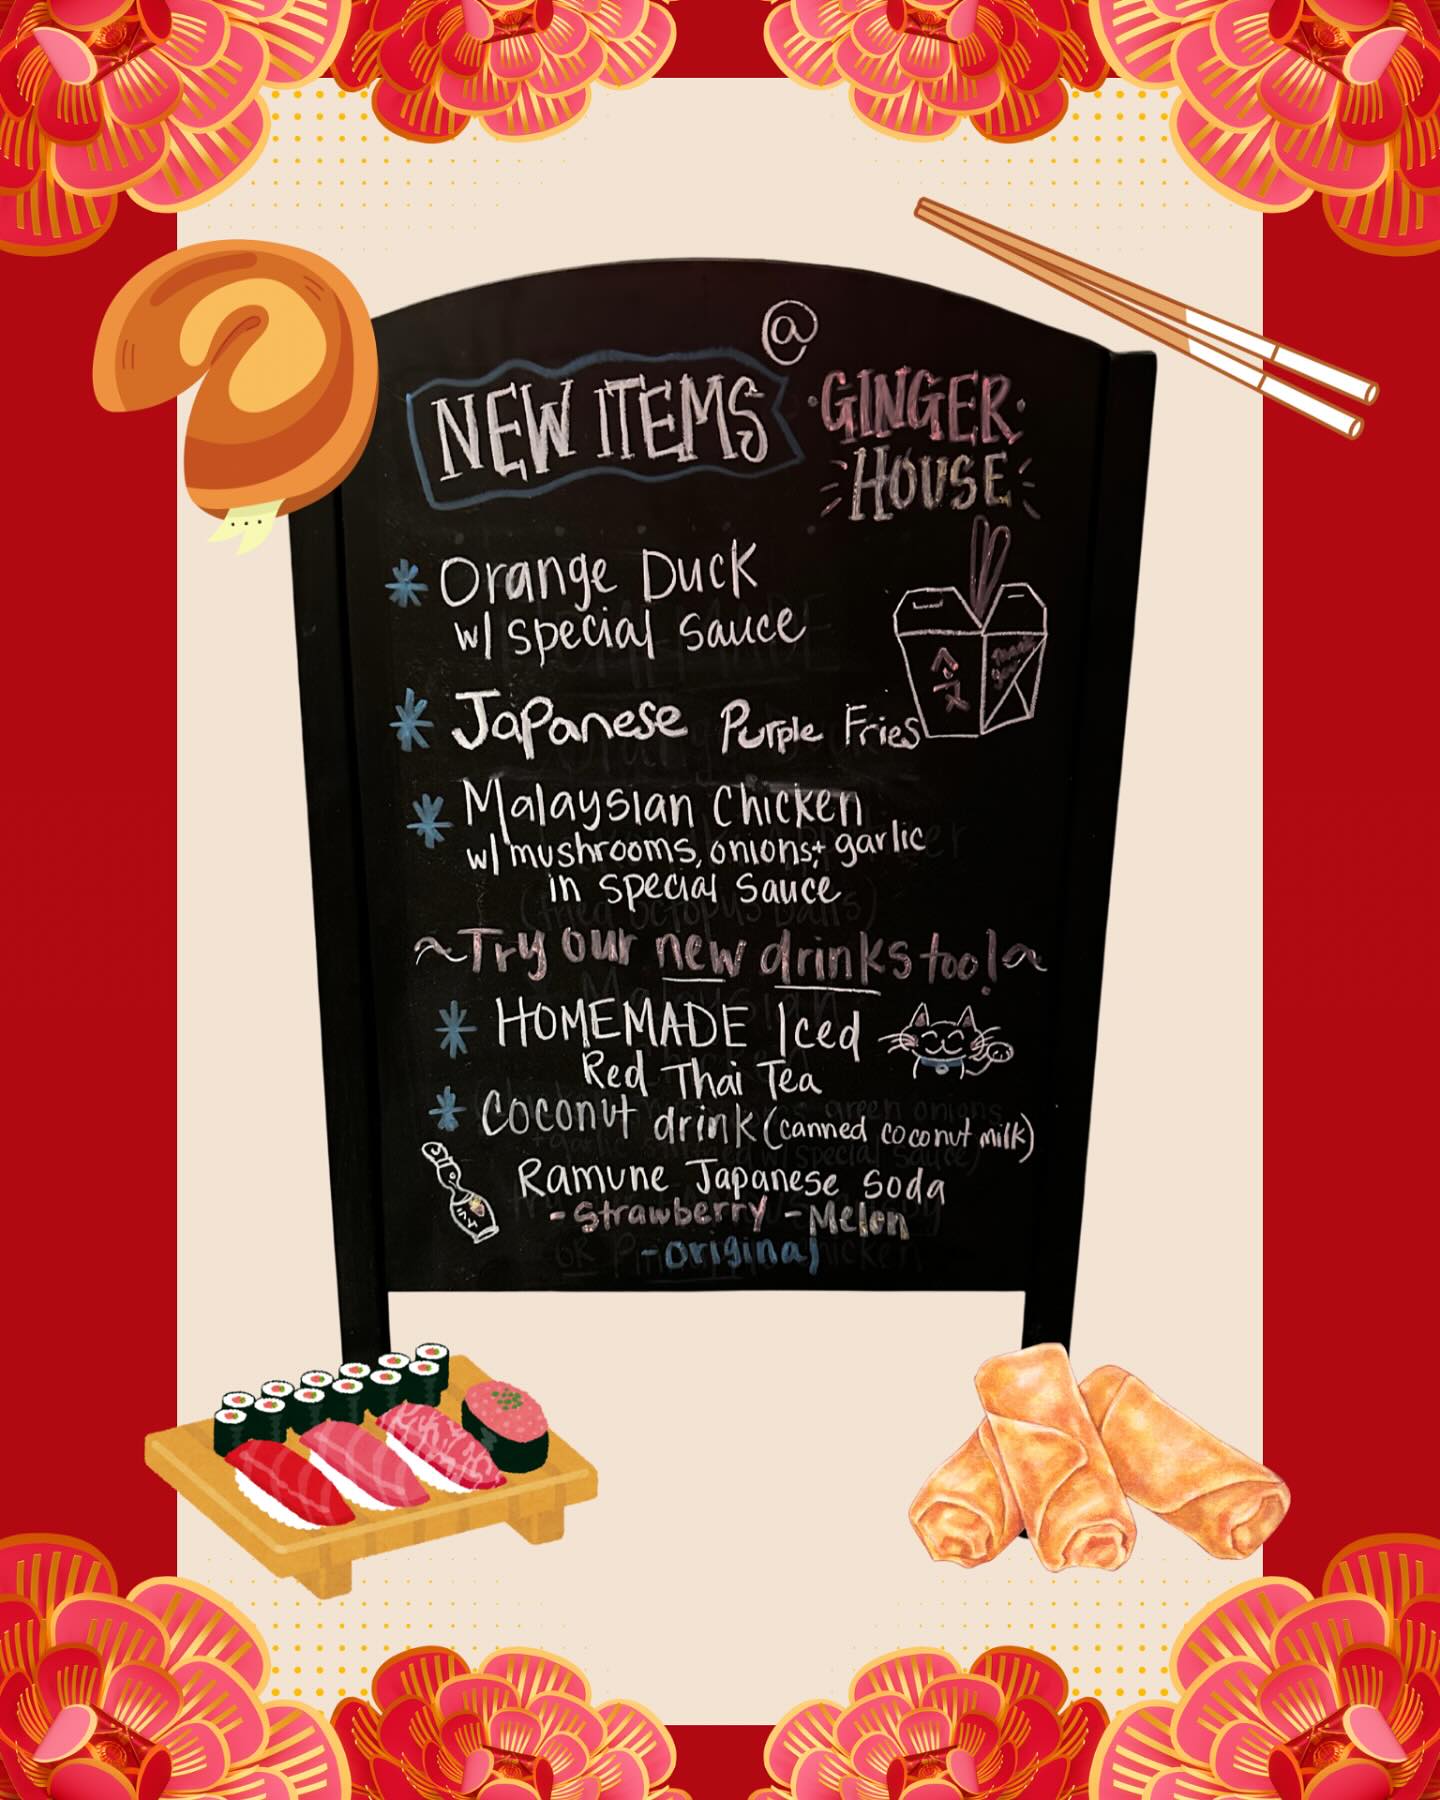 @
NEW ITEMS
GINGER
HOUSE
Orange Duck
w/ special sauce
Japanese Purple Fries
Malaysian Chicken
w/ mushrooms, onions + garlic
in special sauce
~Try our new drinks too!~
HOMEMADE Iced
Red Thai Tea
Coconut drink (canned coconut milk)
Ramune Japanese Soda
-Strawberry -Melon
-original